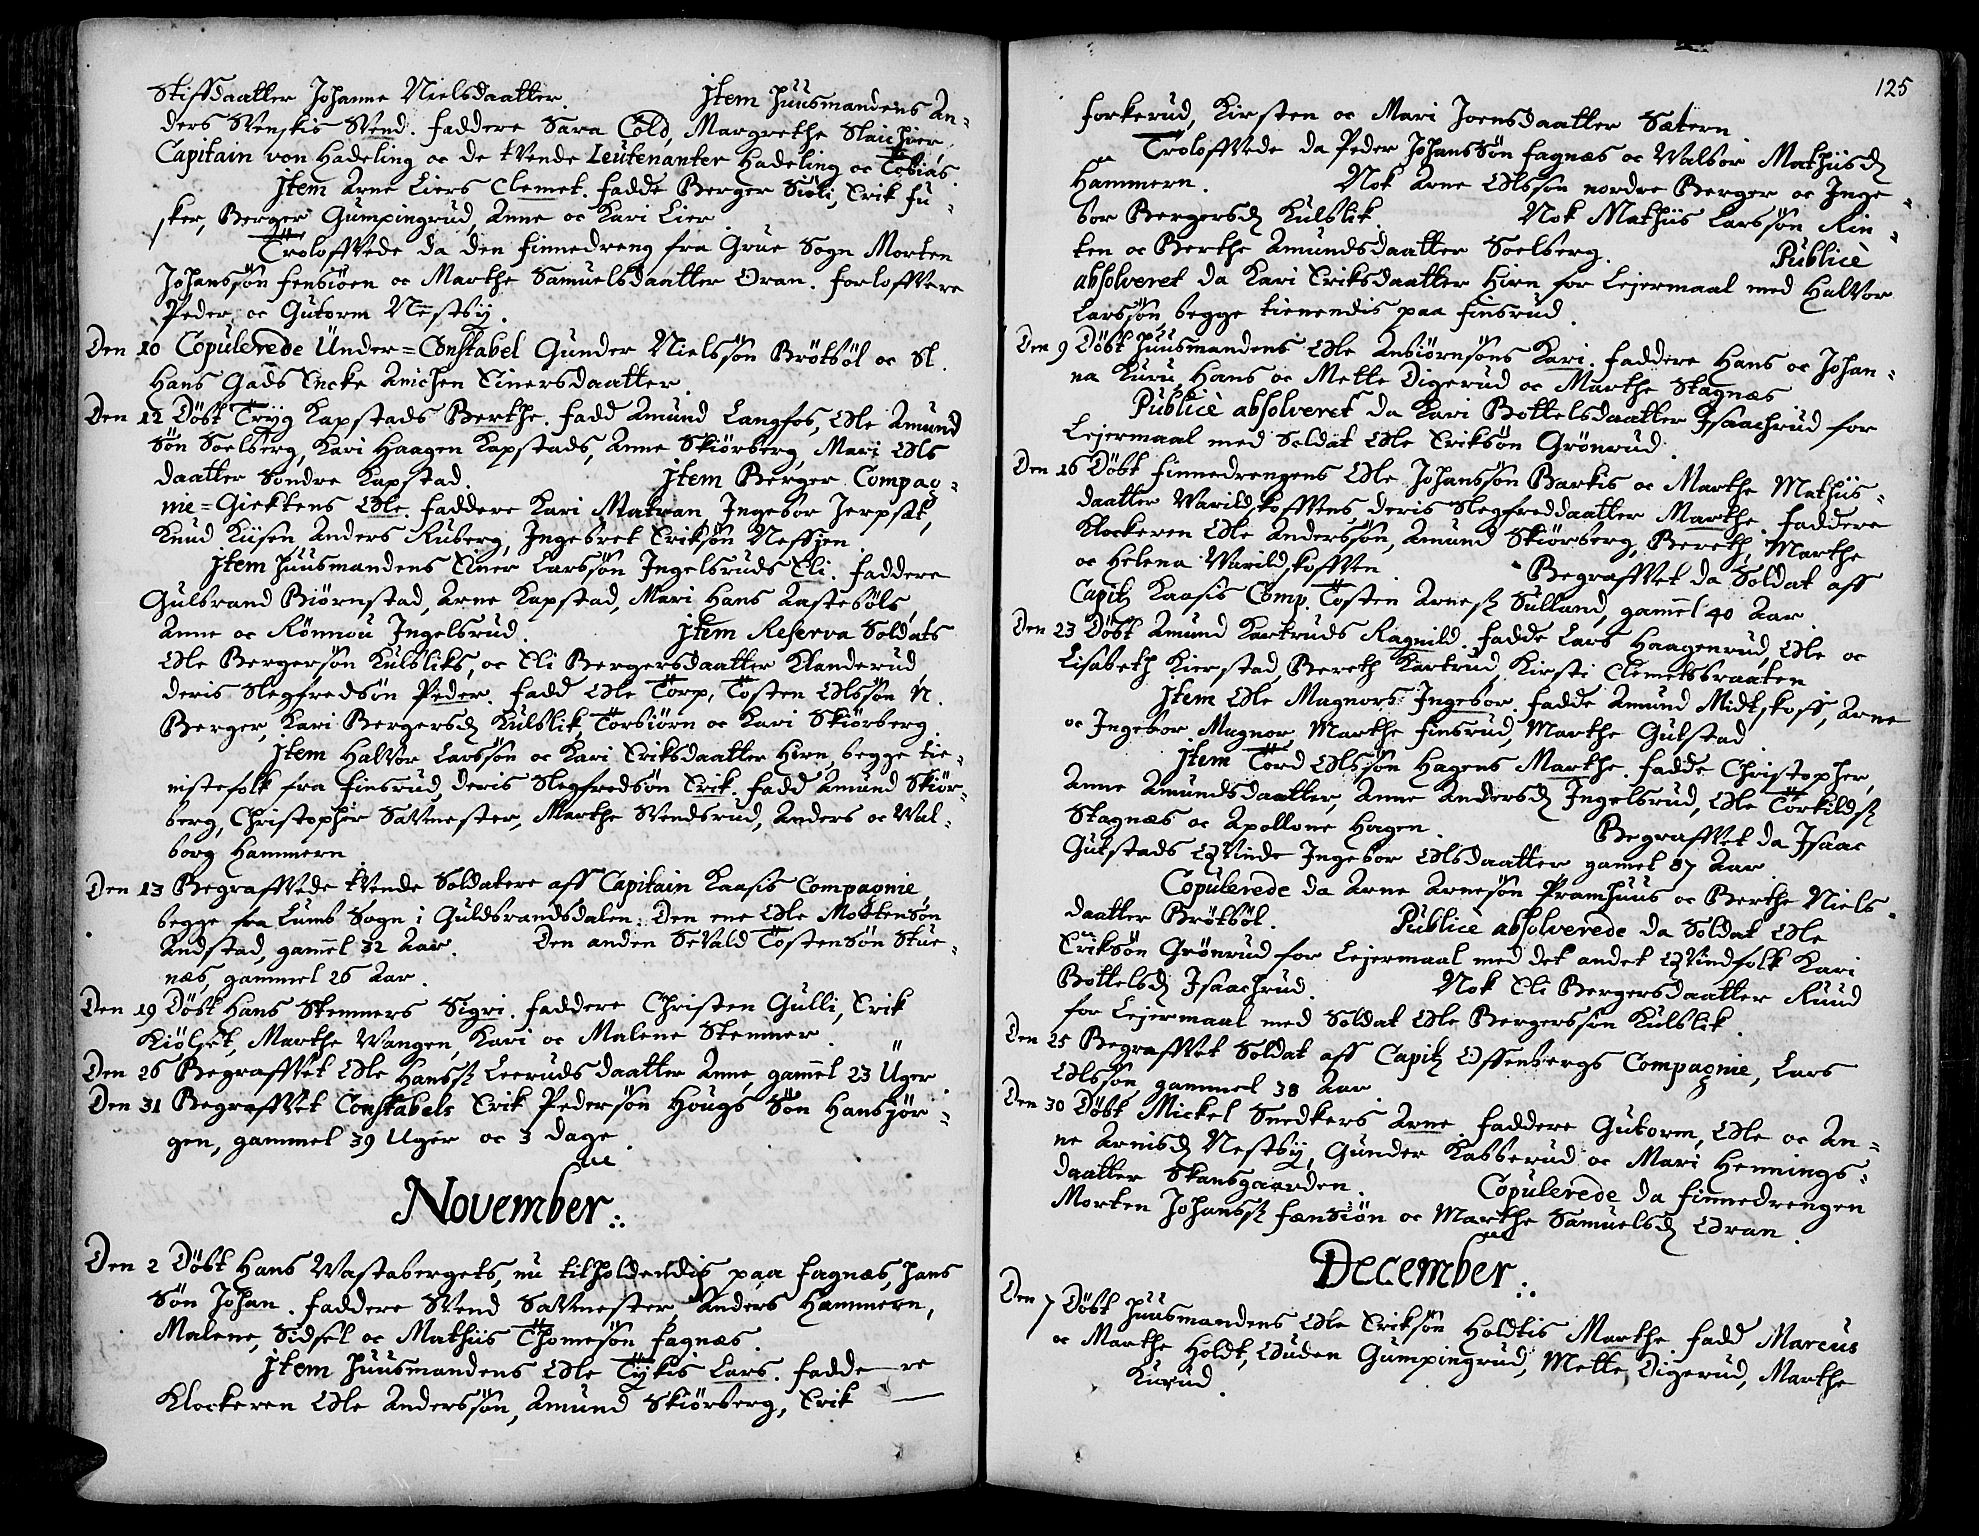 Stiffdaatter Johanne Nielsdaatter. Jtem Huusmandens An-
ders Svenskis Svend. Faddere Sara Cold, Margrethe Slaichier,
Capitain von Hadeling oc de tvende Leutenanter Hadeling oc Tobias.
Jtem Arne Liers Clemet. Fadde Berger Siöli, Erik Fu-
sker, Berger Gumpingrud, Anne oc Kari Lier.
Troloffvede da den Finnedreng fra Grue Sogn Morten
Johanssön Fensiöen oc Marthe Samuelsdaatter Oran. Forloffvere
Peder oc Gutorm Nestby.
Den 10 Copulerede Under-Constabel Gunder Nielssön Brötböl oc Sl.
Hans Gads Encke Anichen Einersdaatter.
Den 12 Döbt Tryg Kapstads Berthe. Fadd Amund Langfos, Ole Amund
Sön Soelberg, Kari Haagen Kapstads, Anne Skiörberg, Mari Ols
daatter Söndre Kapstad. Jtem Berger Compag-
nie-Giektens Ole. Faddere Kari Matran, Ingebor Jerpset,
Knud Kiisen Anders Ruberg, Ingebret Eriksön Nessjen.
Jtem Huusmandens Einer Larssön Ingelsruds Eli. Faddere
Gulbrand Biörnstad, Arne Kapstad, Mari Hans Aasteböls,
Anne oc Rönnou Ingelsrud. Jtem Reserva Soldats
Ole Bergersön Kulbliks, oc Eli Bergersdaatter Klanderud
deris Slegfredsön Peder. Fadd Ole Torp, Tosten Olssön N.
Berger, Kari Bergersd Kulblik, Torbiörn oc Kari Skiörberg.
Jtem Halvor Larssön oc Kari Eriksdaatter Hirn, begge tie-
nistefolk fra Finsrud, deris Slegfredsön Erik. Fadd Amund Skiör-
berg, Christopher Savmester, Marthe Svendsrud, Anders oc Wal-
borg Hammern
Den 13 Begraffvede tvende Soldatere aff Capitain Kaasis Compagnie
begge fra Lums Sogn i Guldbrandsdalen: Den ene Ole Mortensön
Andstad, gammel 32 Aar. Den anden Sevald Tostensön Stue-
næs, gammel 26 Aar.
Den 19 Döbt Hans Stemners Sigri. Faddere Christen Gulli, Erik
Kiölset, Marthe Wangen, Kari oc Malene Stemner.
Den 26 Begraffvet Ole Hanss Leeruds daatter Anne, gamel 23 Uger.
Den 31 Begraffvet Constabels Erik Pedersön Hougs Sön Hans Jör-
gen, gammel 39 Uger oc 3 Dage.
November.
Den 2 Döbt Hans Wastabergets, nu tilholdendis paa Fagnæs, Hans
Sön Johan. Faddere Svend Savmester Anders Hammern,
Malene, Sidsel oc Mathiis Thomesön Fagnæs.
Jtem Huusmandens Ole Tykis Lars. Faddere
Klockeren Ole Anderssön, Amund Skiörberg, Erik
125
Forkerud, Kirsten oc Mari Joensdaatter Sætern.
Troloffvede da Peder Johanssön Fagnæs oc Walbor Mathiisd
Hammern. Nok Arne Olssön nordre Berger oc Inge-
bor Bergersd Kulblik. Nok Mathiis Larssön Rin-
ten oc Berthe Amundsdaatter Soelberg. Publicè
absolveret da Kari Eriksdaatter Hirn for Lejermaal med Halvor
Larssön begge tienendis paa Finsrud.
Den 9 Döbt Huusmandens Ole Anbiörnsöns Kari. Faddere Hans oc Johan-
na Kuru, Hans oc Mette Digerud oc Marthe Stagnæs
Publicè absolveret da Kari Bottelsdaatter Isaachrud for
Lejermaal med Soldat Ole Eriksön Grönrud.
Den 16 Döbt Finnedrengens Ole Johanssön Barkis oc Marthe Mathiis-
daatter Warildskoffvens deris Slegfreddaatter Marthe. Faddere
Klockeren Ole Anderssön, Amund Skiörberg, Bereth, Marthe
oc Helena Warildskoffven. Begraffvet da Soldat aff
Capit Kaasis Comp. Tosten Arness Sulland, gamel 40 Aar.
Den 23 Döbt Amund Kartruds Ragnild. Fadde Lars Haagenrud, Ole oc
Lisabeth Kierstad, Bereth Kartrud, Kirsti Clemetsbraaten
Jtem Ole Magnors Ingebor. Fadde Amund Midtskoff, Arne
oc Ingebor Magnor, Marthe Finsrud, Marthe Gulstad
Jtem Tord Olssön Hagens Marthe. Fadde Christopher,
Anne Amundsdaatter, Anne Andersd Ingelsrud, Ole Torkilds
Stagnæs oc Apollone Hagen. Begraffvet da Isaac
Gulstads Qvinde Ingebor Olsdaatter gamel 87 Aar.
Copulerede da Arne Arnesön Pramhuus oc Berthe Niels-
daatter Brötböl. Publicè absolverede da Soldat Ole
Eriksön Grönrud for Lejermaal med det andet Qvindfolk Kari
Bottelsd Isaachrud. Nok Eli Bergersdaatter Ruud
for Lejermaal med Soldat Ole Bergerssön Kulblik.
Den 25 Begraffvet Soldat aff Capit Offenbergs Compagnie, Lars
Olssön, gammel 38 Aar.
Den 30 Döbt Mickel Snedkers Arne. Faddere Gutorm, Ole oc An-
ne Arnisd Nestby, Gunder Kabberud oc Mari Hennings-
daatter Skansgaarden. Copulerede da Finnedrengen
Morten Johanss Fænsiön oc Marthe Samuelsd Oran.
December.
Den 7 Döbt Huusmandens Ole Eriksön Holdtis Marthe. Fadd Marcus
oc Marthe Holdt, Ouden Gumpingrud, Mette Digerud, Marthe
Kurud.